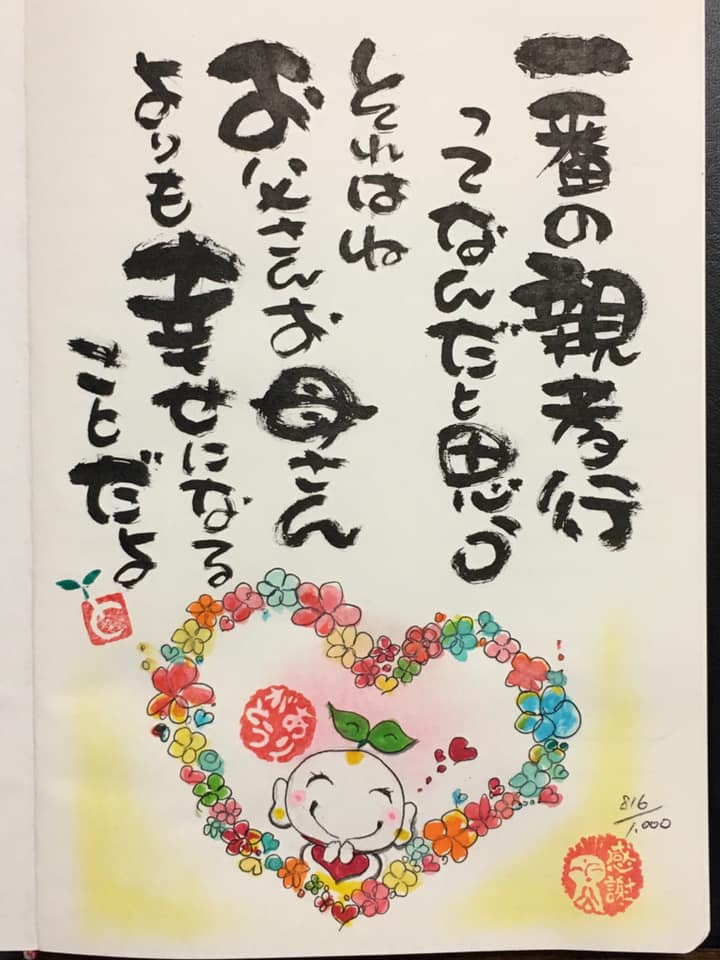 一番の親孝行
ってなんだと思う
それはね
お父さんお母さん
よりも幸せになる
ことだよ
と
ありがとう
816/1,000
感謝